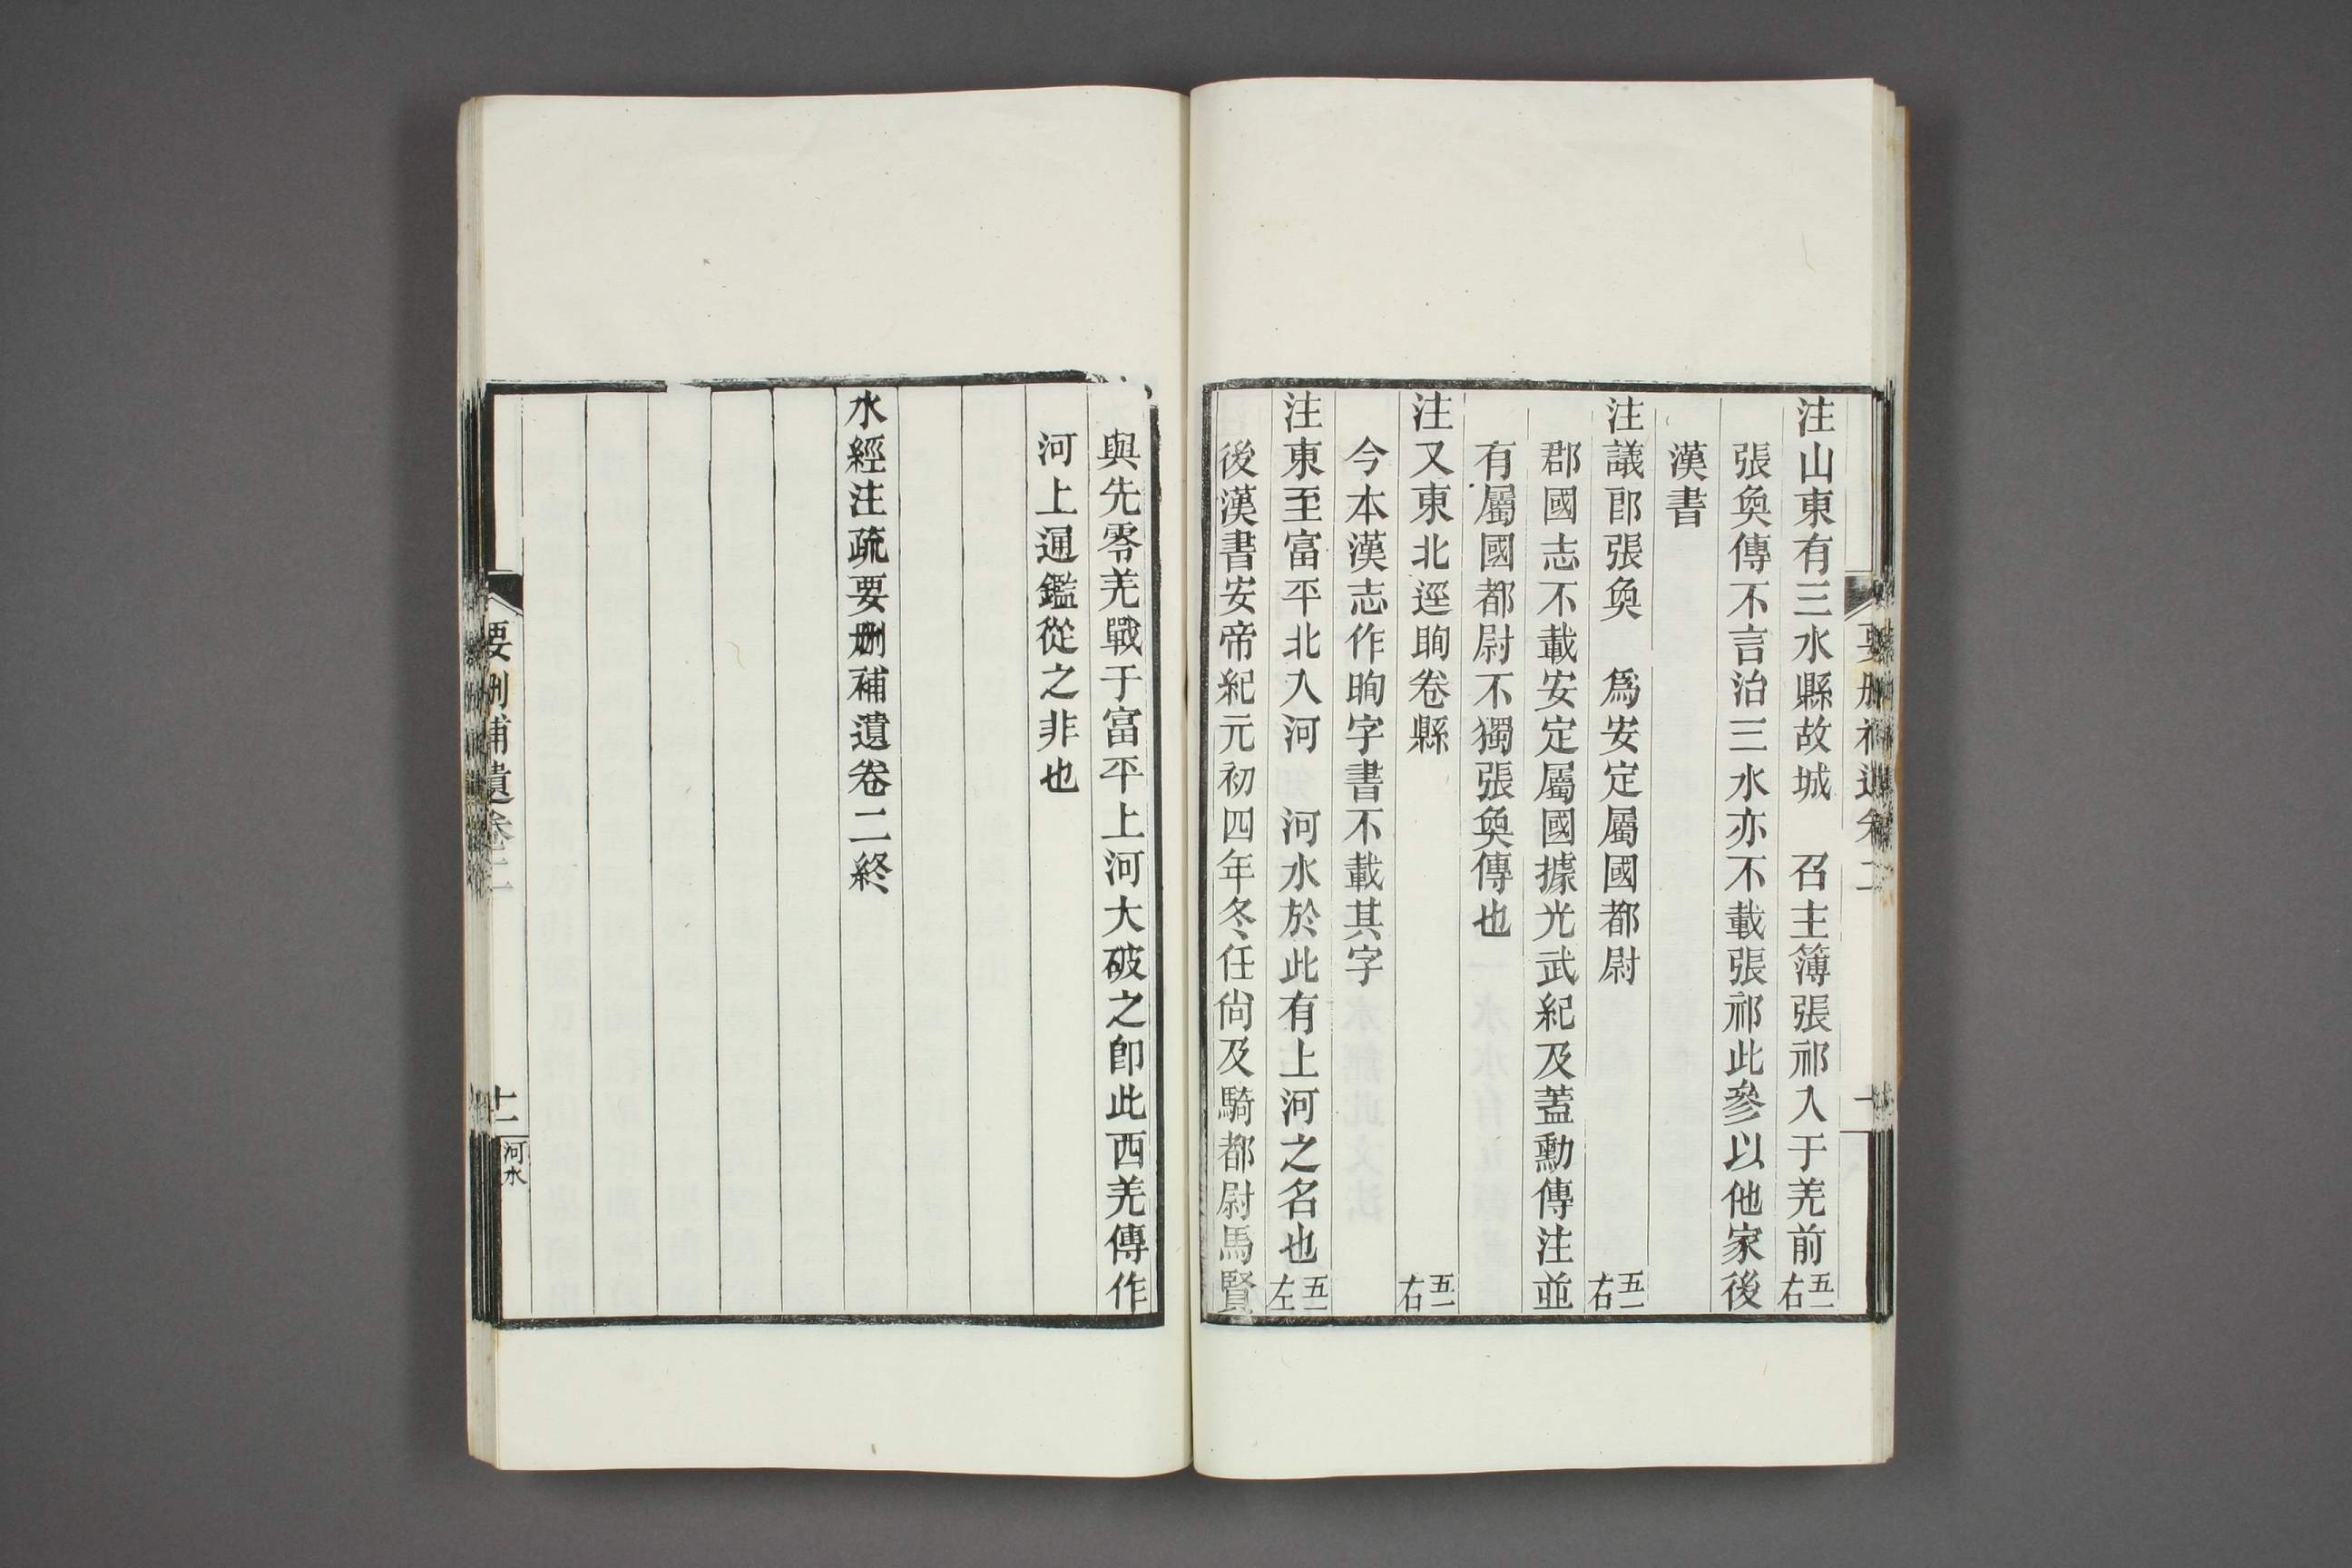 注山東有三水縣故城　召主簿張祁入于羌前五一右
張奐傳不言治三水亦不載張祁此參以他家後
漢書
注議郎張奐　爲安定屬國都尉五一右
郡國志不載安定屬國據光武紀及蓋勳傳注並
有屬國都尉不獨張奐傳也
注又東北逕眴卷縣五一右
今本漢志作眴字書不載其字
注東至富平北入河　河水於此有上河之名也五一左
後漢書安帝紀元初四年冬任尙及騎都尉馬賢
與先零羌戰于富平上河大破之卽此西羌傳作
河上通鑑從之非也
水經注疏要刪補遺卷二終
要刪補遺卷二
十一
河水